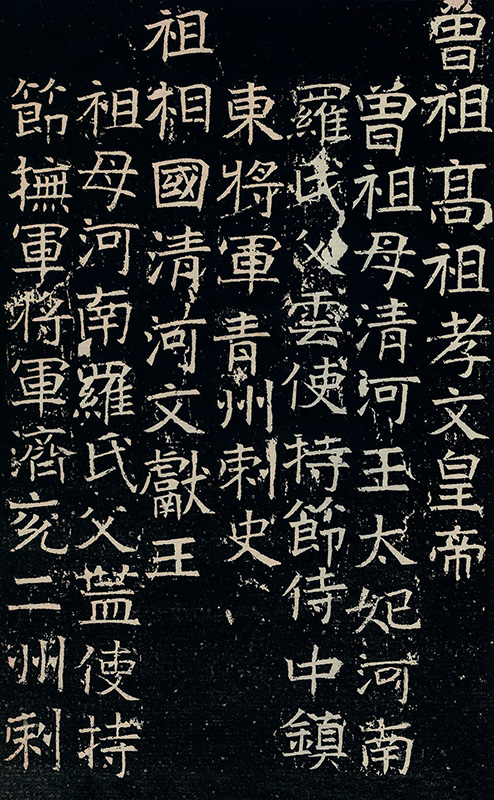 曾祖髙祖孝文皇帝
曾祖母清河王太妃河南
羅氏父雲使持節侍中鎮
東將軍青州刺史
祖相國清河文獻王
祖母河南羅氏父蓋使持
節撫軍將軍濟兗二州刺